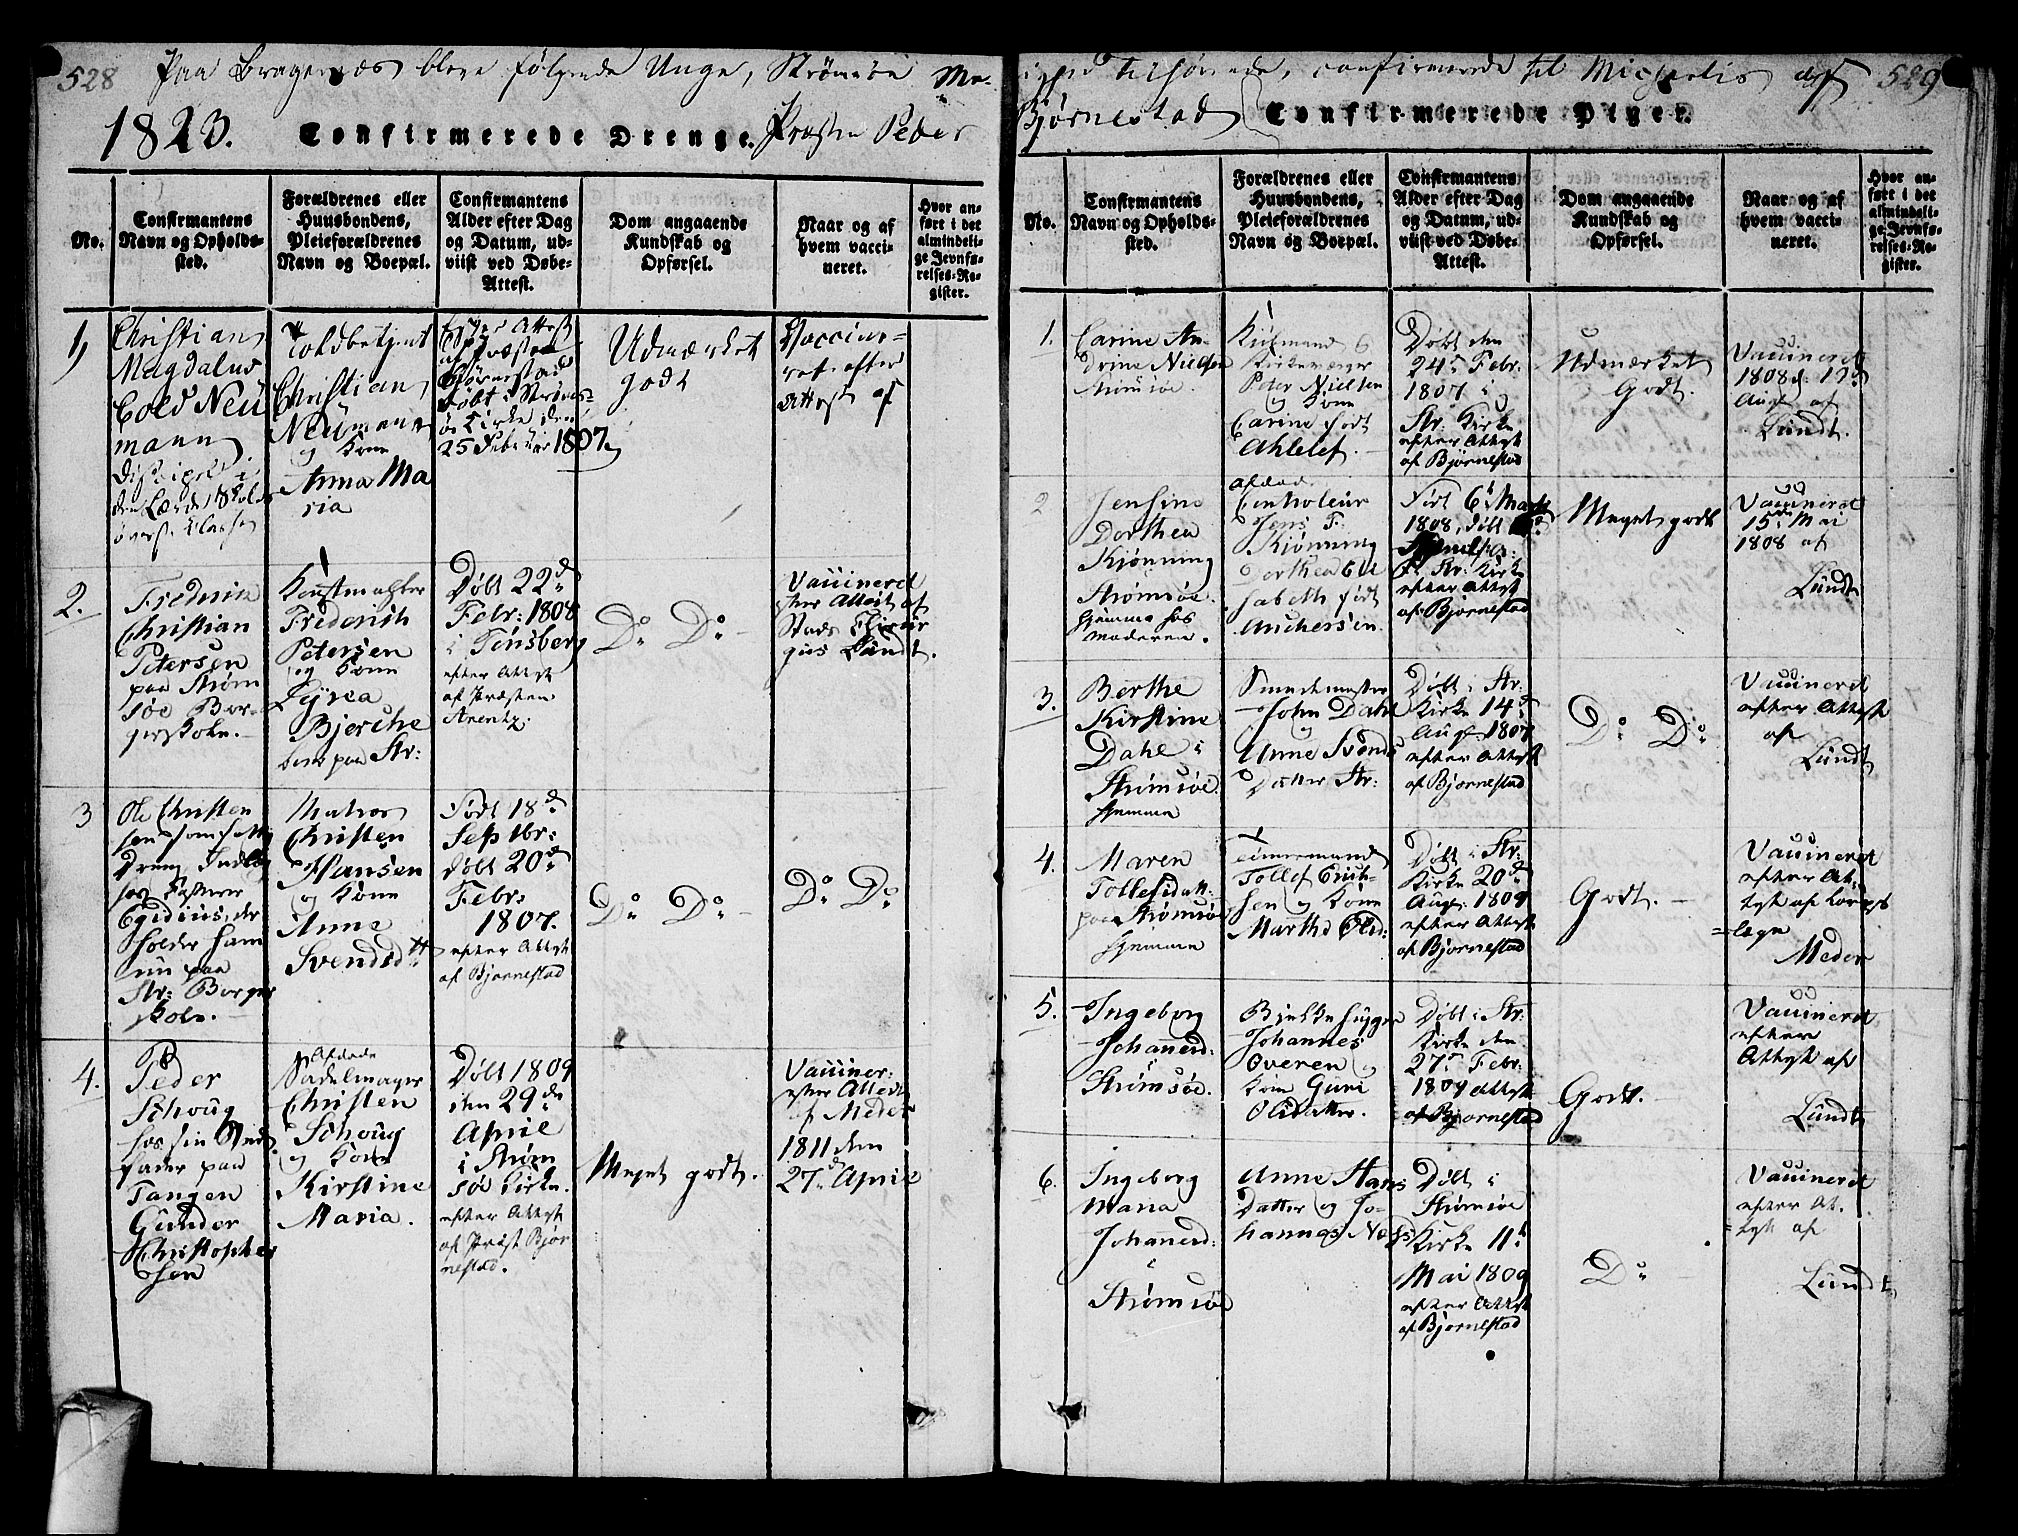 528 Paa Bragernæs bleve følgende Unge, Strømsöe Me-
1823. Confirmerede Drenge. Præsten Peder
No.
Confirmantens Navn og Opholds-sted.
Forældrenes eller Huusbondens, Pleieforældrenes Navn og Boepæl.
Confirmantens Alder efter Dag og Datum, ud-viist ved Døbe-Attest.
Dom angaaende Kundskab og Opførsel.
Naar og af hvem vacci-neret.
Hvor an-ført i det almindeli-ge Jevnfø-relses-Re-gister.
1,
Christian
Magdalus
Cold Neü
mann
Discipel i
den Lærde Skoles
øverste Classe
Toldbetjent
Christian
Neümann
og Kone
Anna Ma
ria
Attest
af Præsten
Bjørnestad
døbt i Strøms-
øe Kirke den
25 Februar 1807
Udmærket
godt
Vaccine-
ret efter
Attest af
2.
Frederik
Christian
Petersen
paa Strøm
söe Bor-
gerskole.
Kunstmaster
Friderich
Petersen
og Kone
Lyrea
Bjerche
boer paa Str:
Döbt 22d
Febr: 1808
i Tønsberg
efter Attest
af Præsten
Arentz.
Do Do
Vaccineret
efter Attest af
Stads Chirur
gus Lündt.
3
Ole Christen
sen
Dreng
hos
Egidius, der
holder ham
nu paa
Str: Borger
skole.
Matros
Christen
Hansen
og Kone
Anne
Svendsdtt
Födt 18d
Septbr:
döbt 20d
Febr:
1807.
efter Attest
af Bjørnestad
Do Do
Do Do
4.
Peder
Schoug
hos sin Sted
fader paa
Tangen
Gunder
Christopher
sen
Afdøde
Sadelmager
Christen
Schoug
og Kone
Kirstine
Maria.
Döbt 1809
den 29de
April
i Strøm
söe Kirke.
efter Attest
af Præst Bjør
nestad.
Meget godt.
Vacciner:
efter Attest
af Meder
1811 den
27d April
tilhørende, confirmerede til Michaelis af 529
Bjørnestad Confirmerede Piger.
No.
Confirmantens Navn og Opholds-sted.
Forældrenes eller Huusbondens, Pleieforældrenes Navn og Boepæl.
Confirmantens Alder efter Dag og Datum, ud-viist ved Døbe-Attest.
Dom angaaende Kundskab og Opførsel.
Naar og af hvem vacci-neret.
Hvor an-ført i det almindeli-ge Jevnfø-relses-Re-gister.
1.
Carine An-
drine Nielsen
Strömsöe.
Kiøbmand
Kirkeværger
Peter Nielsen
og Kone
Carine födt
Ahlelef.
Döbt den
24de Febr.
1807 i
Str: Kirke
efter Attest
af Bjørnestad
Udmærket
Godt.
Vaccineret
1808 d: 17d
Aug. af
Lündt.
2
Jensine
Dorthea
Kjönning
Strømsöe.
hjemme hos
moderen.
afdøde
Controleur
Jens F.
Kjönning
Dorthea Eli
sabeth födt
Anchersen.
Födt 6t Marts
1808, döbt
Str: Kirke
efter Attest
af Bjørnestad
Meget godt
Vaccineret
15de Mai
1808 af
Lündt
3.
Berthe
Kirstine
Dahl i
Strømsöe.
hjemme
Smedmester
John Dahl
og
Anne Svends
Datter Str:
Döbt i Str:
Kirke 14d
Aug. 1807
efter Attest
af Bjørnestad
Do Do
Vaccineret
efter Attest
af
Lündt
4.
Maren
Tollefsdatt:
paa Strømsöe
hjemme
Tømmermand
Tollef Erich-
sen og Kone
Marthe Olsd:
Döbt i Str:
Kirke 20d
Aug: 1809
efter Attest
af Bjørnestad
Godt.
Vaccineret
efter At-
test af Corps
læge
Meder
5.
Ingeborg
Johannesd:
Strømsöe.
Bjelkehugger
Johannes
Overen og
Kone Guri
Olsdatter.
Döbt i Str:
Kirke den
27de Febr:
1809 Attest
af Bjørnestad
Godt.
Vaccineret
efter
Attest af
Lündt
6.
Ingeborg
Maria
Johannesd:
i
Strømsöe
Anne Hans
Datter og Jo-
hannes Næss
Döbt i
Strømsöe
Kirke 11t
Mai 1809
efter Attest
af Bjørnestad
Do
Vaccineret
efter At-
test af
Lündt